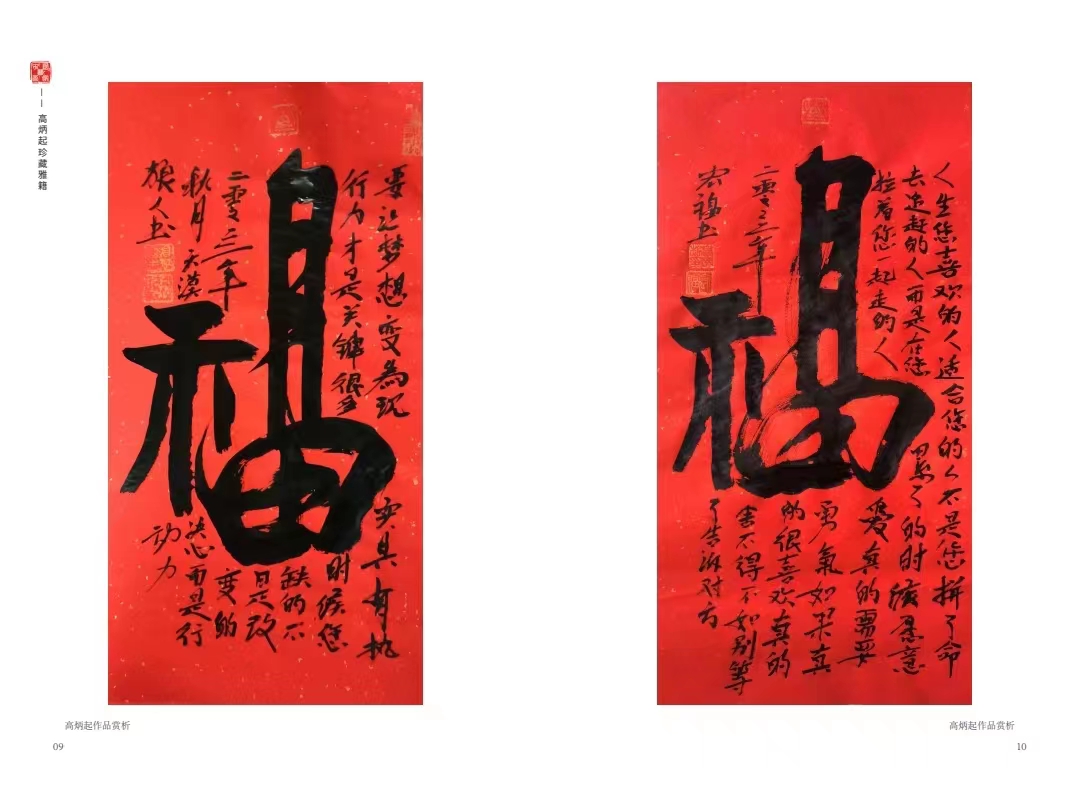 高炳起珍藏雅籍
要让梦想变为现
实具有执
行力才是关键很多
时候您
缺的不
是改
变的
决心而是行
动力
福
二零二三年
秋月天漠
狼人书
高炳起作品赏析
09
人生您喜欢的人适合您的人不是您拼了命
去追赶的人而是在您
累了的时候愿意
拉着您一起走的人
爱真的需要
勇气如果真
的很喜欢真的
舍不得不如别等
了告诉对方
福
二零二三年
宏福书
高炳起作品赏析
10